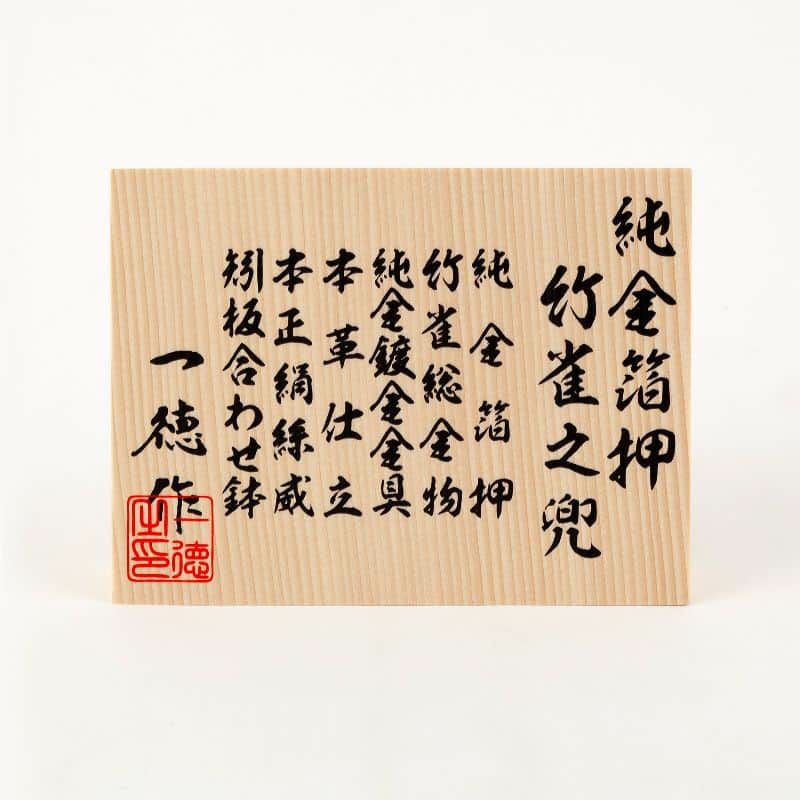 純金箔押
竹雀之兜
純金箔押
竹雀総金物
純金鍍金金具
本革仕立
本正絹糸威
矧板合わせ鉢
一徳作
一徳之印